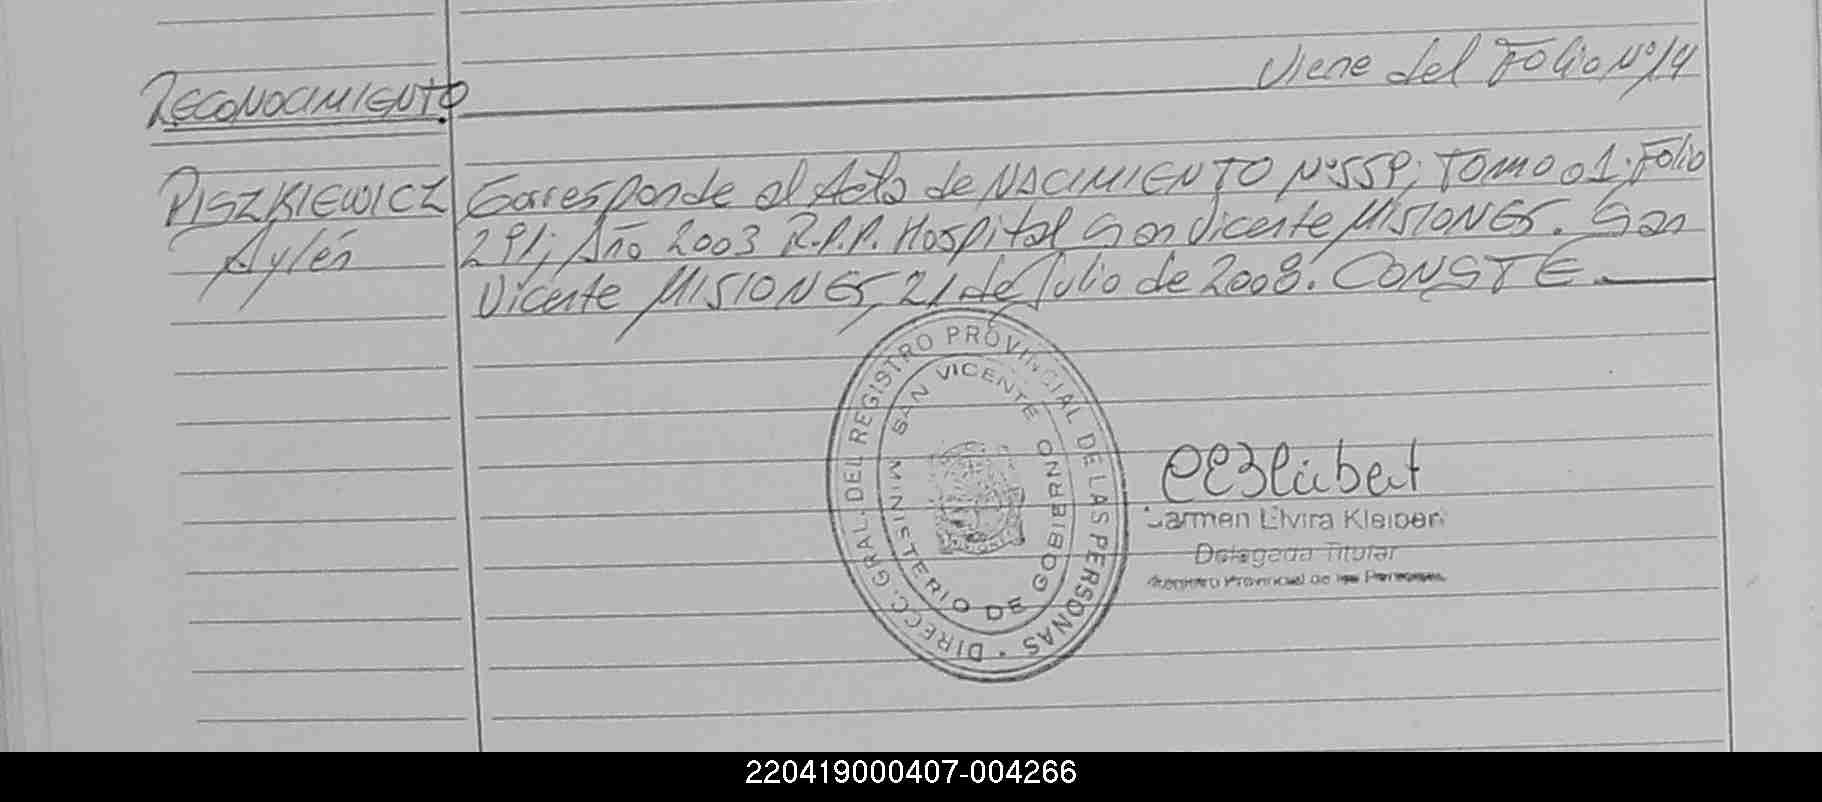 Viene del Folio Nº 14
RECONOCIMIENTO
PISZKIEWICZ Corresponde al Acta de NACIMIENTO Nº 559; TOMO 01. Folio
Aylén 291; Año 2003 R.P.P. Hospital San Vicente MISIONES. San
Vicente MISIONES, 21 de Julio de 2008. CONSTE.
DIRECC. GRAL. DEL REGISTRO PROVINCIAL DE LAS PERSONAS
SAN VICENTE
MINISTERIO DE GOBIERNO
Carmen Elvira Kleiber
Delegada Titular
Registro Provincial de las Personas
220419000407-004266